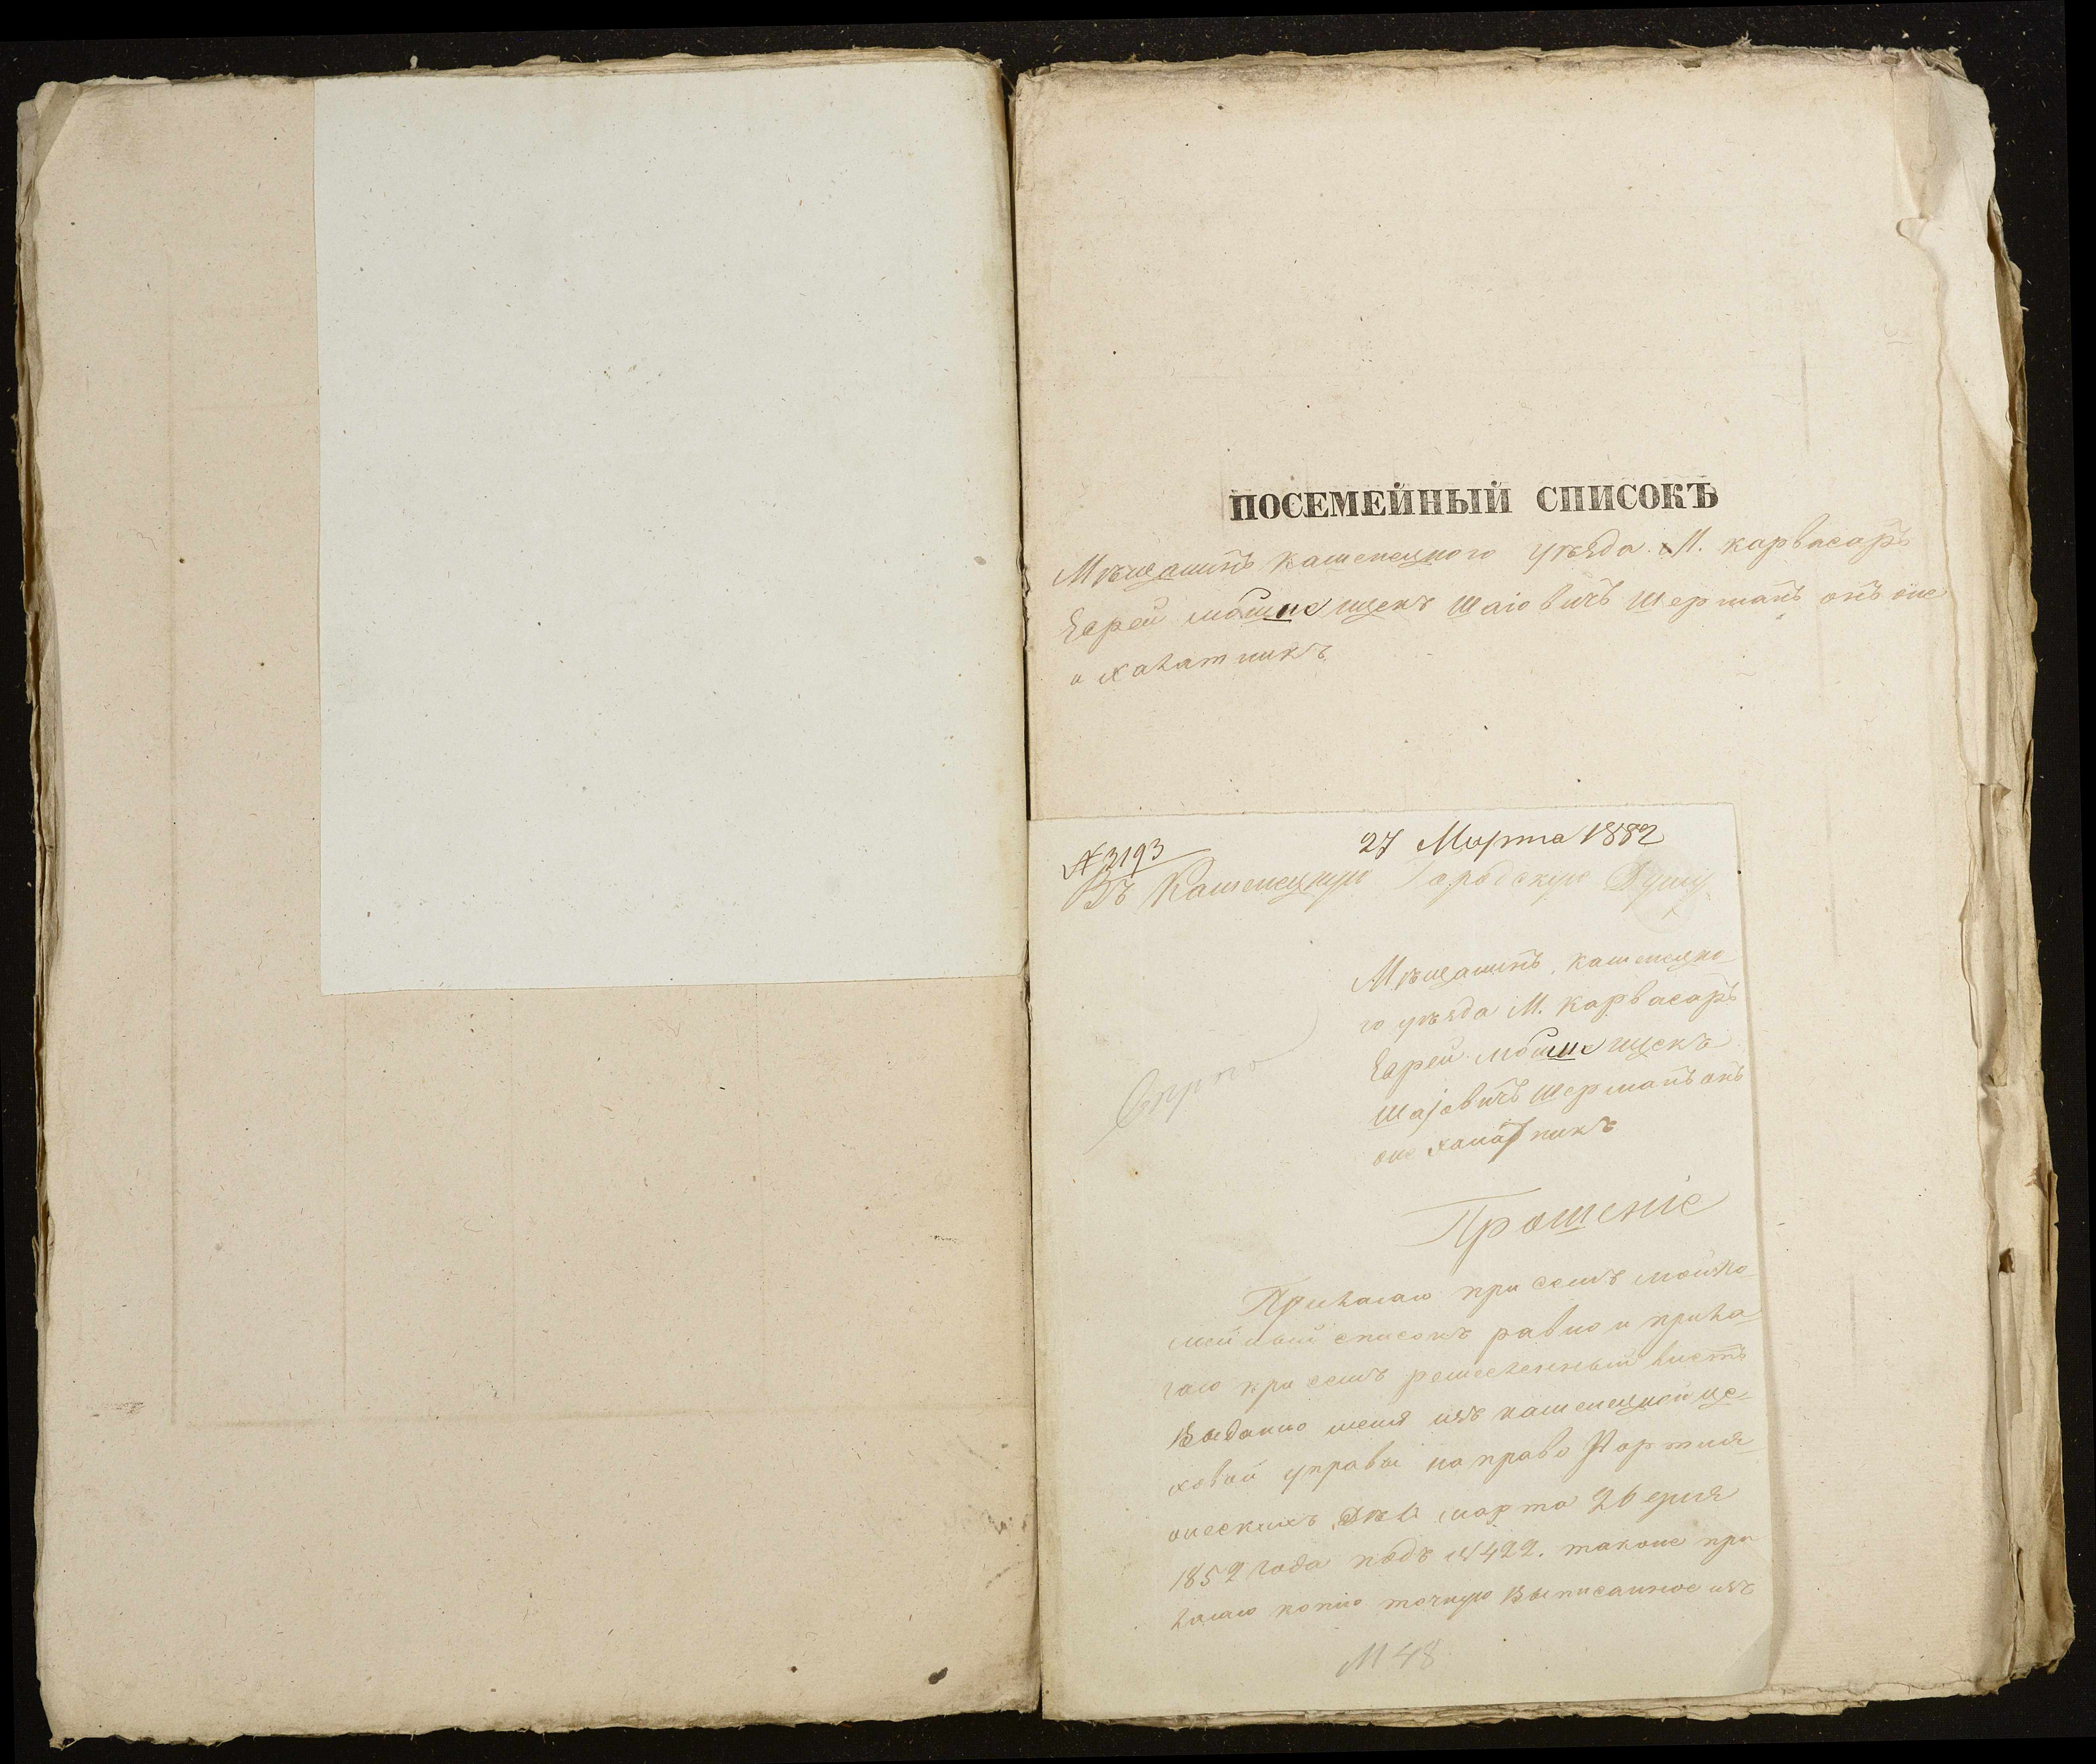 ПОСЕМЕЙНЫЙ СПИСОКЪ
Мѣщанинъ каменецкого уѣзда М. карвасаръ
Еврей мошко ицекъ Шаіовичъ Шерманъ онъ же
и хаhатникъ
№ 3193
27 Марта 1882
Въ Каменецкую Гародскую Думу
Мѣщанинъ, каменецко
го уѣзда М. карвасаръ
Еврей мошко ицекъ
Шаjовичъ Шерманъ онъ
же
Прошеніе
Приhагаю при семъ мой по
мейный списокъ равно и приhа
гаю при семъ hистъ
Выдано меня изъ каменецкой це
ховой управы на право
марта 26 дня
1852 года подъ № 422. также при
hагаю копію точную Выписанное изъ
№ 48